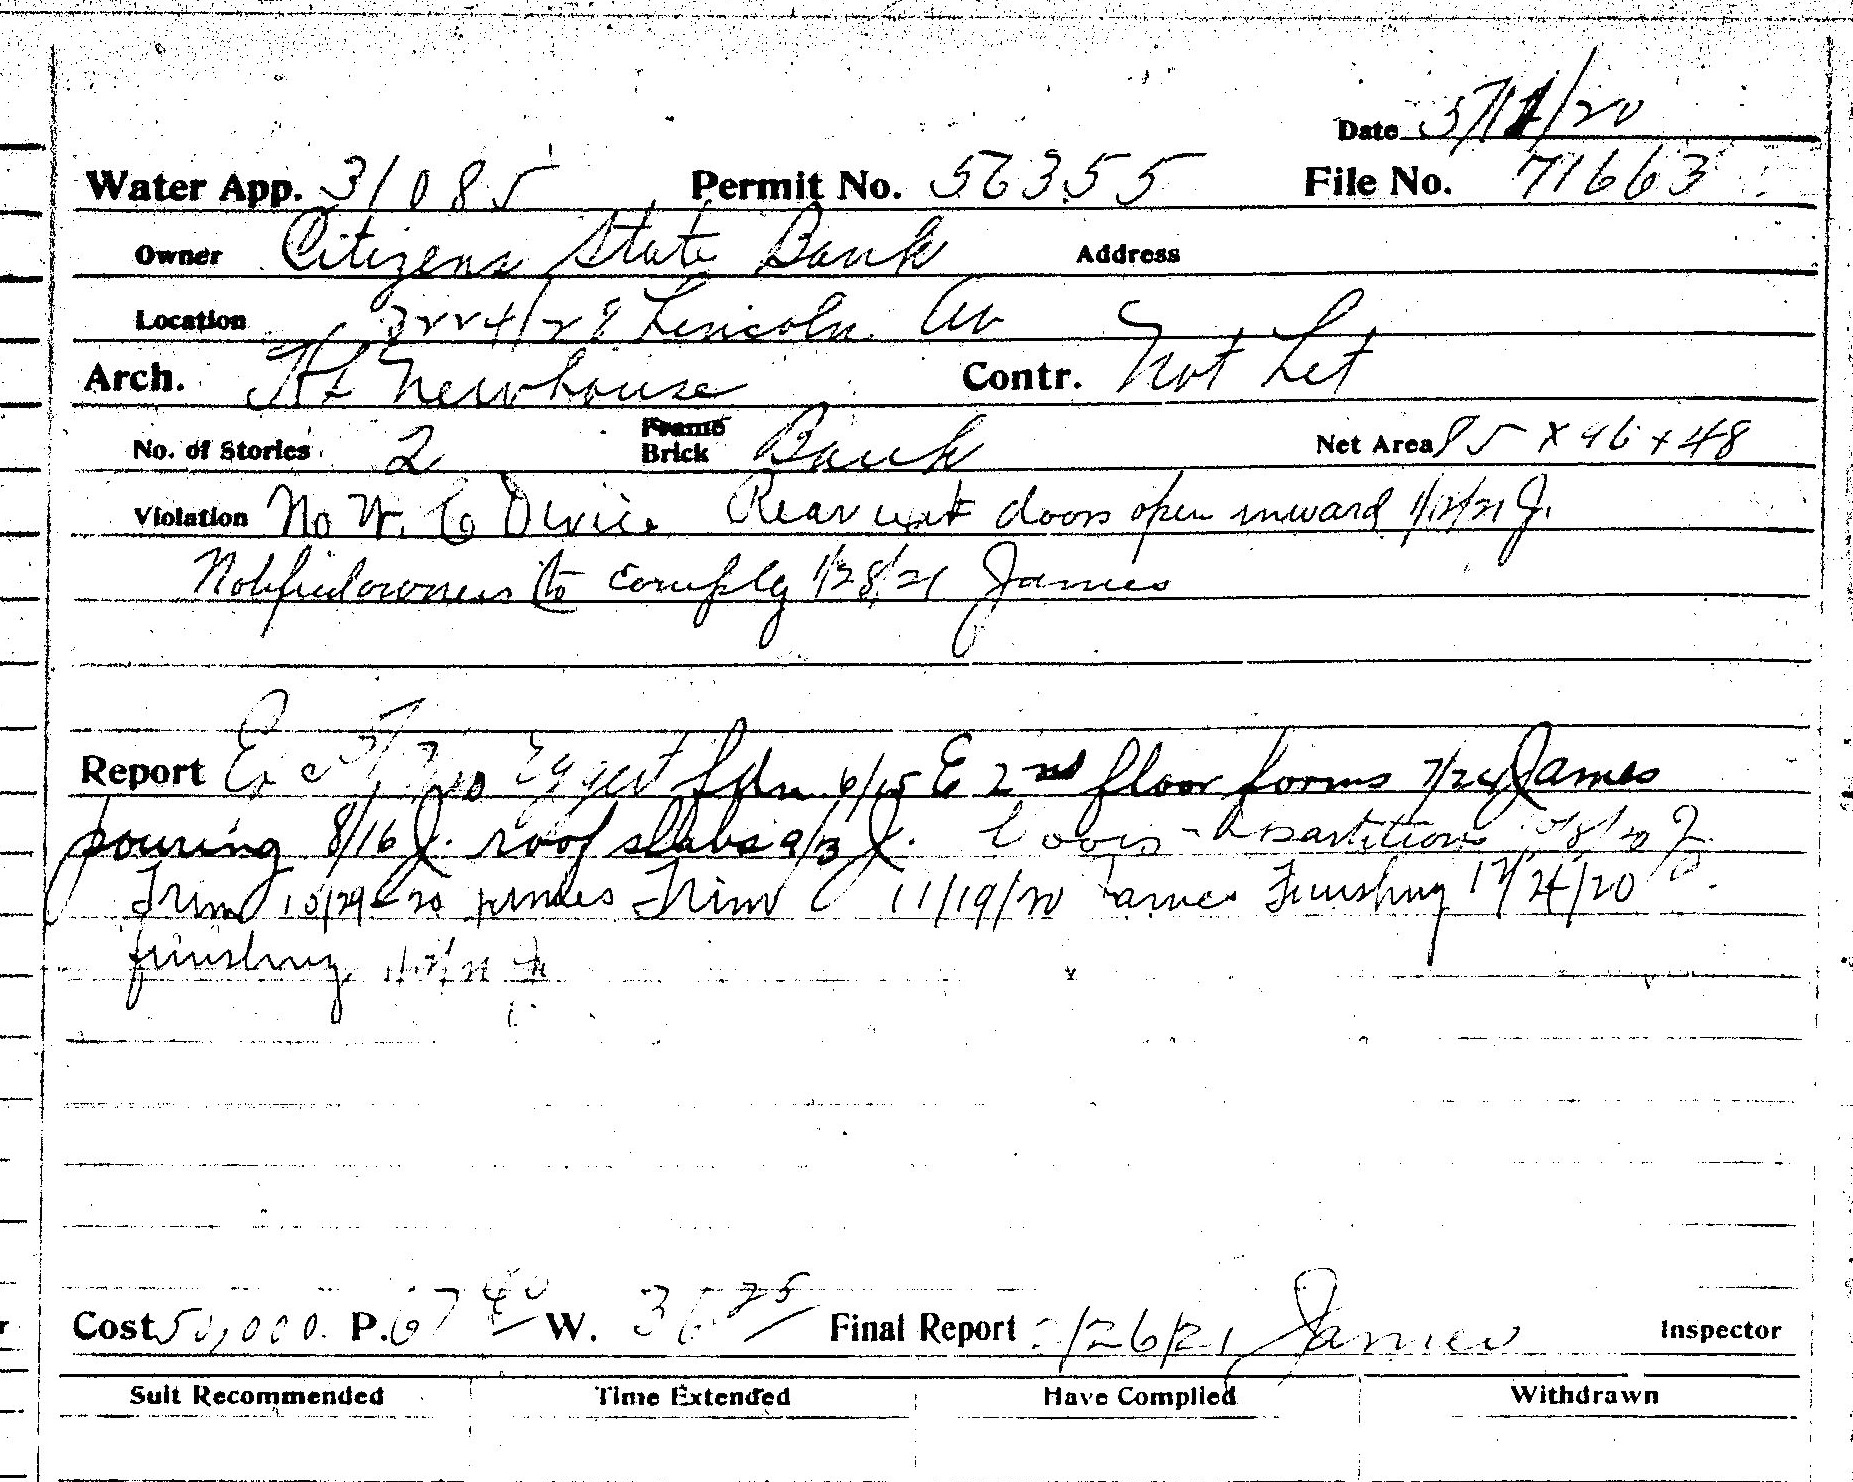 Date 5/11/20
Water App. 31085 Permit No. 56355 File No. 71663
Owner Citizens State Bank Address
Location 3224/28 Lincoln Av
Arch. HL Newhouse Contr. Not Let
No. of Stories 2 Frame Brick Bank Net Area 85 x 46 x 48
Violation No W. C Device Rear exit doors open inward 1/12/21 J.
Notified owners to comply 1/28/21 James
Report Ex Eggert fdn 6/15 E 2nd floor forms 7/24 James
pouring 8/16 J. roof slabs 9/3 J. partitions
Trim 10/29-20 James Trim 11/19/20 James Finishing 12/24/20 J.
finishing
Cost 50,000. P. 67 40 W. 36 75 Final Report 2/26/21 James Inspector
Suit Recommended Time Extended Have Complied Withdrawn